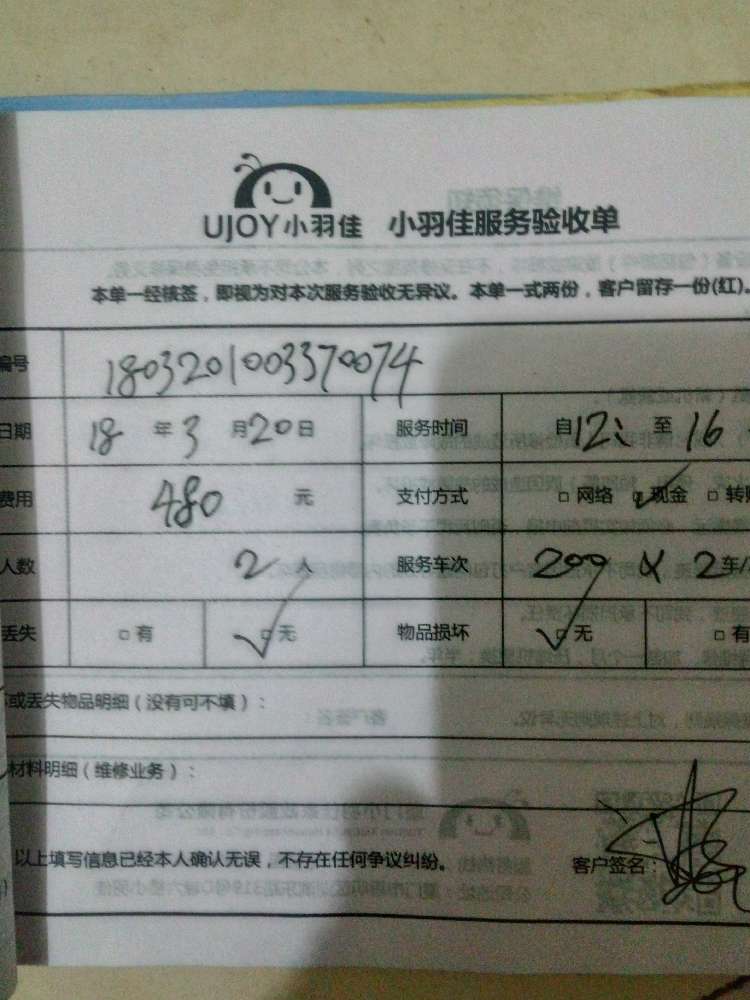 UJOY小羽佳 小羽佳服务验收单
本单一经核签，即视为对本次服务验收无异议。本单一式两份，客户留存一份(红)。
编号 1803201003370074
日期 18 年 3 月 20 日 服务时间 自 12: 至 16
费用 480 元 支付方式 □ 网络 □ 现金 □ 转账
人数 2 人 服务车次 200 X 2 车/
丢失 □ 有 □ 无 物品损坏 □ 无 □ 有
或丢失物品明细（没有可不填）：
材料明细（维修业务）：
以上填写信息已经本人确认无误，不存在任何争议纠纷。 客户签名：